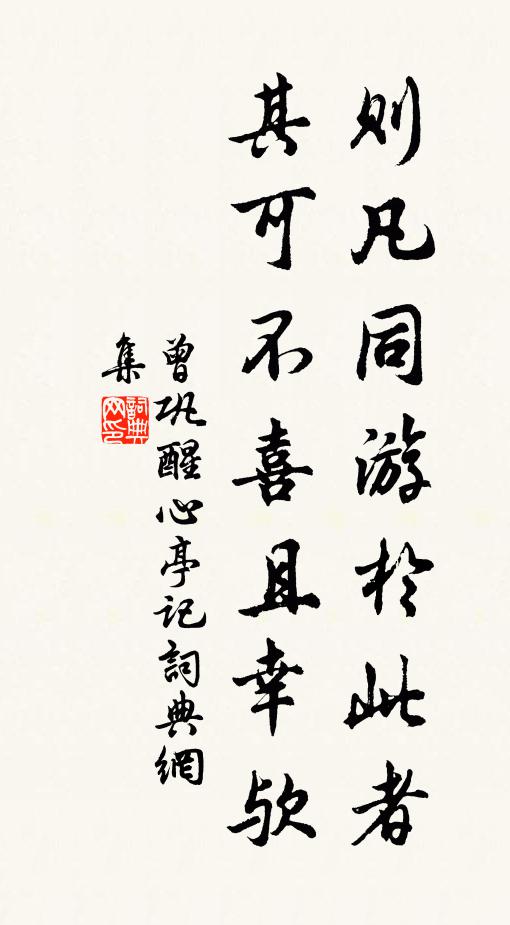 则凡同游於此者
其可不喜且幸欤
曾巩醒心亭记詞典網
集
詞典
网印